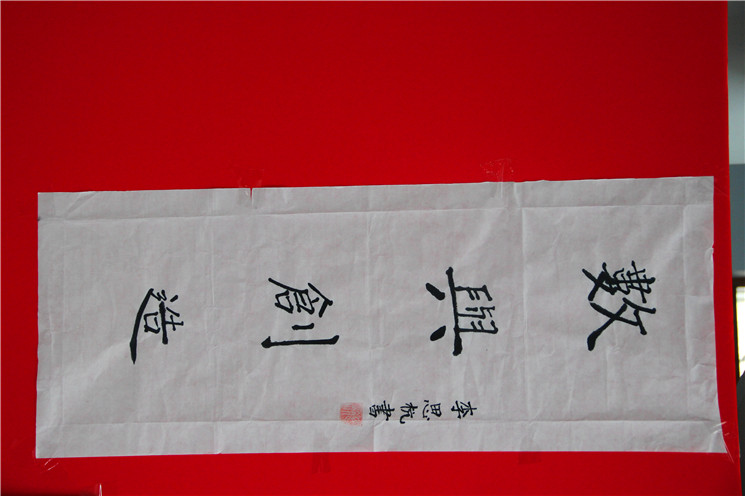 數與創造
李思杭書